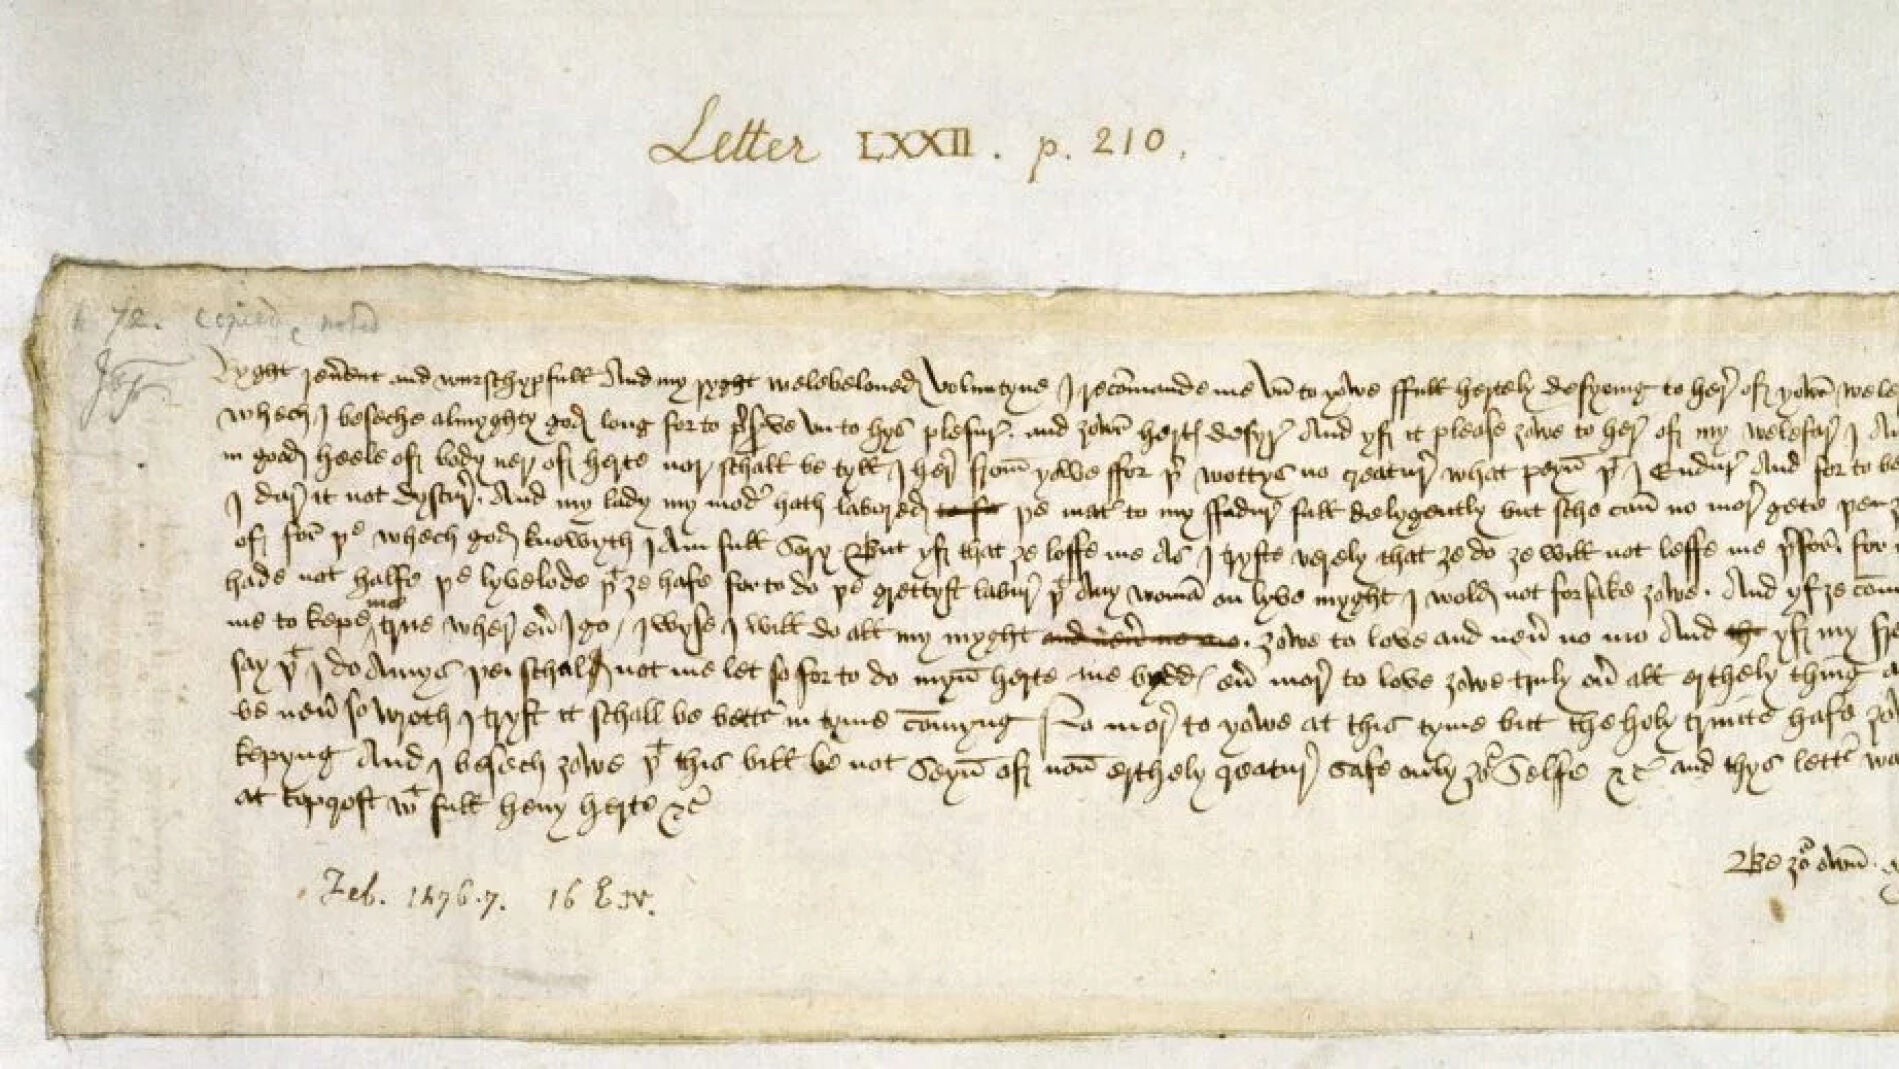 Letter LXXII. p. 210.
72. copied, noted
Ryght reverent and wurschypfull And my ryght welebeloued Voluntyne I recomande me vn to yowe ffull hertely desyring to here of yowr wele
whech I beseche almyghty god long for to preserve vn to hys plesur. and zowr hertȝ desyre And yf it please zowe to here of my welefar I Am
in good heele of body ner of herte nor schall be tyll I her from yowe ffor þer wottys no creatur what peyn þt I Endur And for to be
I dar it not dyscur. And my lady my moder hath labored to þe mater to my ffadur full delygently but sche can no mor gete
of for þe whech god knowyth I Am full Sory But yf that ze loffe me As I tryste verely that ze do ze will not leffe me þerfor. for
hade not halfe þe lyvelode þt ze hafe for to do þe grettyst labur þt Any woman on lyve myght I wold not forsake zowe. And yf ze com
me to kepe me true wher euer I go I wyse I will do all my myght and neuer no mo. zowe to love and neuer no mo And yf my fre
say þt I do Amys þei schal not me let so for to do myn herte me bydd euer mor to love zowe truly ouer all erthely thing
be neuer so wroth I tryst it schall be bettur in tyme comyng No mor to yowe at this tyme but the holy trinite hafe zow
kepyng And I besech zowe þt this bill be not Seyn of non erthely creatur Safe only zour Selfe &c And thys letter wa
at topcroft wt full heuy herte &c
Be zour own
Feb. 1476.7. 16 E. IV.